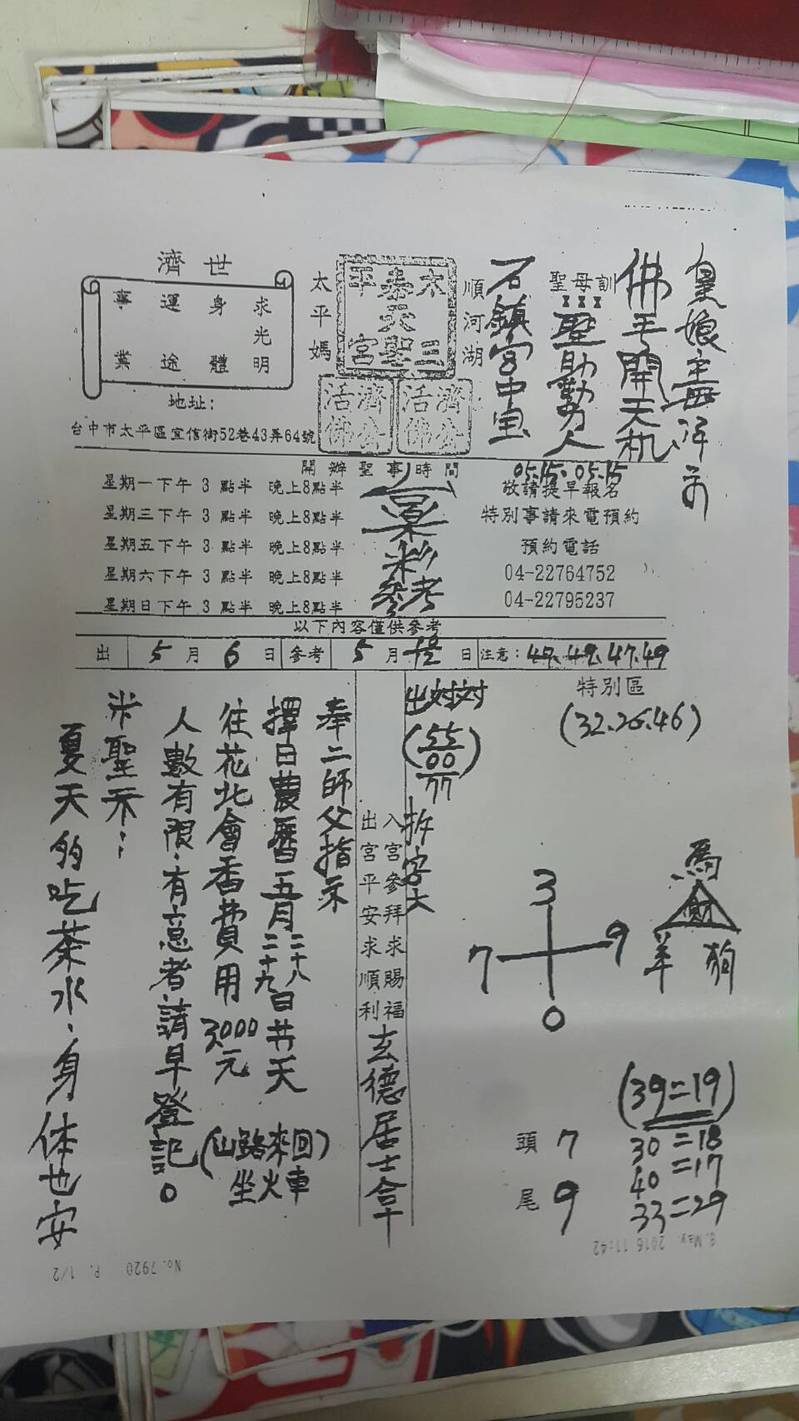 皇娘壽洋前
佛手開天机
聖母訓
聖助勤人
石鎮宮中宝
順河湖
六三
泰天聖
平宮
太平媽
濟公
活佛
濟公
活佛
濟世
求光明
身體
運途
事業
地址：
台中市太平區宜信街52巷43弄64號
開辦聖事時間
星期一下午3點半 晚上8點半
星期三下午3點半 晚上8點半
星期五下午3點半 晚上8點半
星期六下午3點半 晚上8點半
星期日下午3點半 晚上8點半
參考
05.15.05.15
敬請提早報名
特別事請來電預約
預約電話
04-22764752
04-22795237
以下內容僅供參考
出 5月6日 參考 5月 日 注意：47.49.47.49
特別區
(32.26.46)
出對對
(55
00)
77
拆字大
入宮參拜求賜福
出宮平安求順利
玄德居士拿
馬
財
羊 狗
3
7 9
0
(39=19)
30=18
40=17
33=29
頭 7
尾 9
奉二師父指示
擇日農曆五月二十八二十九日廾天
往花北會香費用3000元
人數有限·有意者請早登記。
(山路來回)
坐火車
米聖示：
夏天的吃茶水·身体也安
8.May. 2016 11:42
No. 7920 P. 1/2